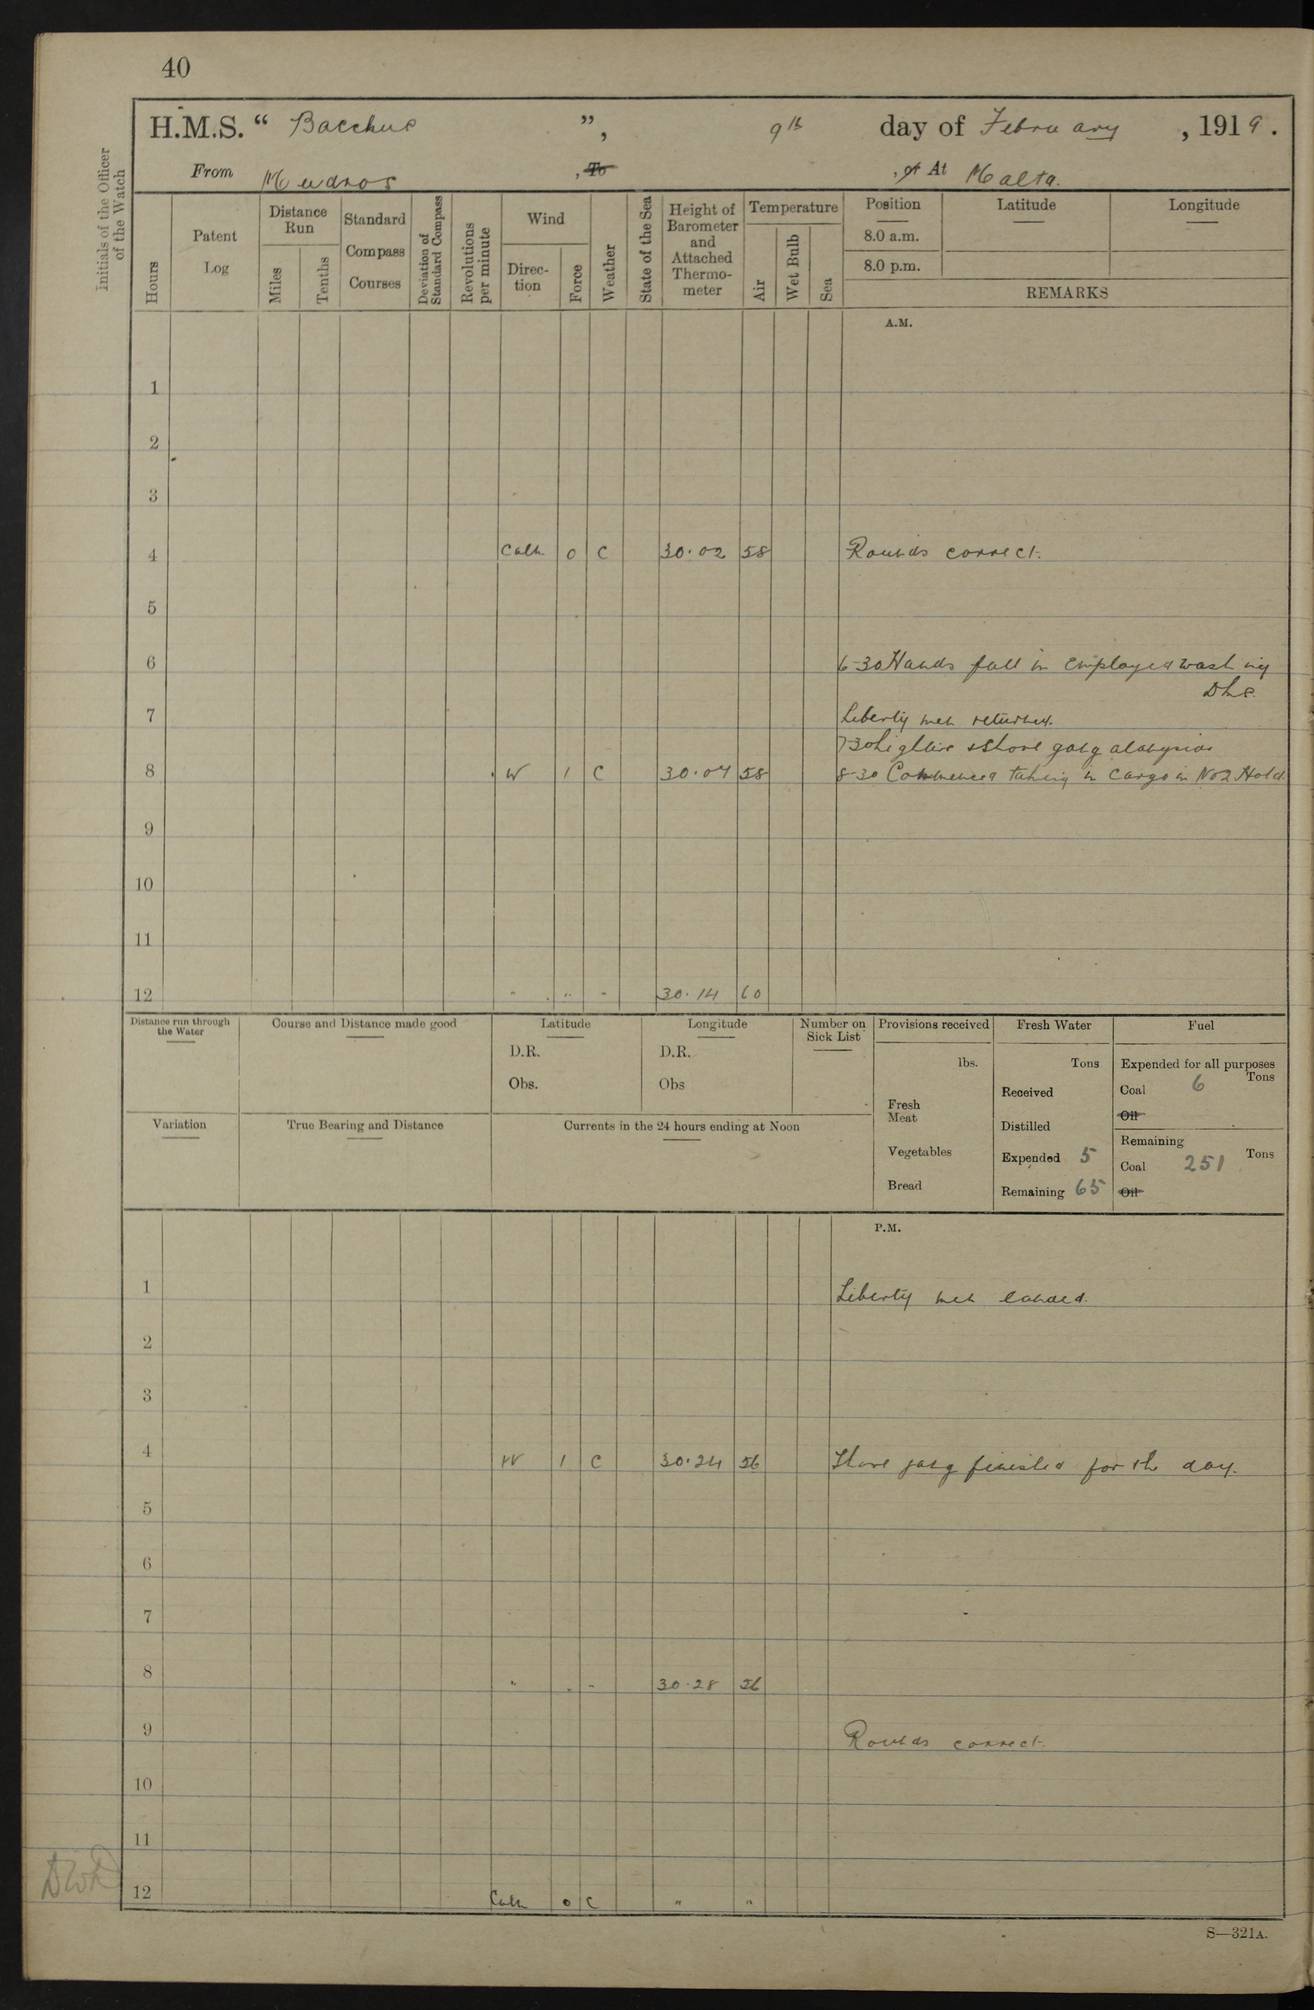 40
H.M.S. “ Bacchus ”, 9th day of February , 1919.
From Mudros , To , or At Malta.
Initials of the Officer of the Watch
Hours
Patent Log
Distance Run
Miles
Tenths
Standard Compass Courses
Deviation of Standard Compass
Revolutions per minute
Wind
Direc-tion
Force
Weather
State of the Sea
Height of Barometer and Attached Thermo-meter
Temperature
Air
Wet Bulb
Sea
Position Latitude Longitude
8.0 a.m.
8.0 p.m.
REMARKS
A.M.
1
2
3
4 Calm 0 C 30·02 58 Rounds correct.
5
6 6-30 Hands fall in employed washing
Dks.
7 Liberty men returned.
7-30 Lighter & Shore gang alongside
8 W 1 C 30·07 58 8-30 Commenced taking in cargo in No2 Hold
9
10
11
12 " " " 30·14 60
Distance run through the Water
Course and Distance made good
Latitude
D.R.
Obs.
Longitude
D.R.
Obs
Number on Sick List
Variation
True Bearing and Distance
Currents in the 24 hours ending at Noon
Provisions received
lbs.
Fresh Meat
Vegetables
Bread
Fresh Water
Tons
Received
Distilled
Expended 5
Remaining 65
Fuel
Expended for all purposes
Tons
Coal 6
Oil
Remaining
Tons
Coal 251
Oil
P.M.
1 Liberty men landed.
2
3
4 W 1 C 30·24 56 Shore gang finished for the day.
5
6
7
8 " " " 30·28 56
9 Rounds correct.
10
11
12 Calm 0 C " "
S—321A.